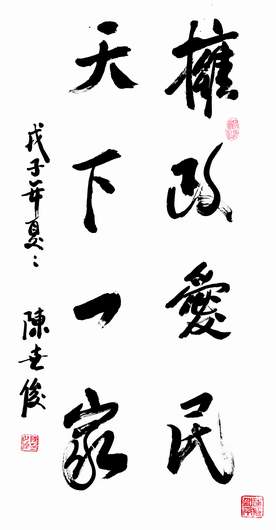 擁政愛民
天下一家
戊子年夏
陳
俊